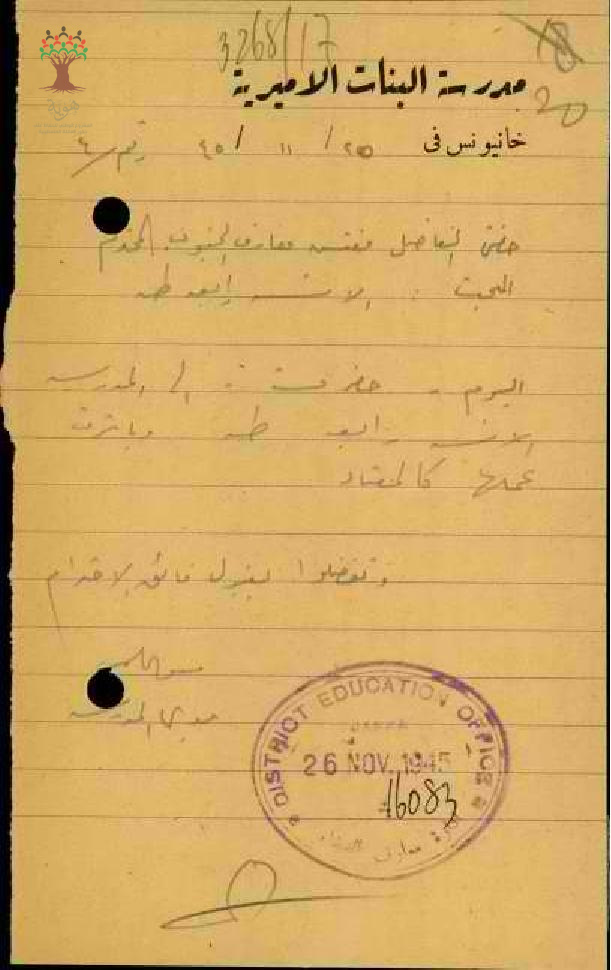 3268/17
18
20
هوية
مدرسة البنات الاميرية
خانيونس فى ٢٥ / ١١ / ٤٥
حضرة الفاضل مفتش معارف الجنوب المحترم
الآنسة رابعه طه
اليوم حضرت الى المدرسه
الآنسه رابعه طه وباشرت
عملها كالمعتاد
وتفضلوا بقبول فائق الاحترام
مديرة المدرسه
DISTRICT EDUCATION OFFICE
26 NOV. 1945
16083
معارف